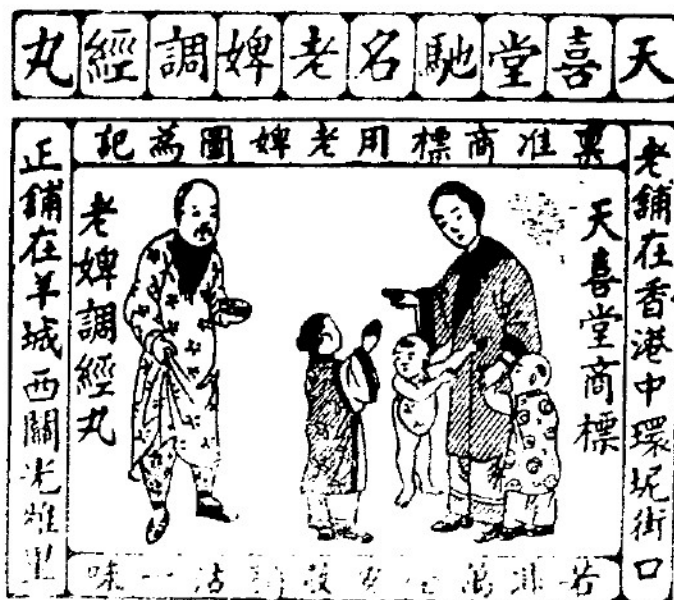 天喜堂馳名老婢調經丸
稟准商標用老婢圖為記
老舖在香港中環坭街口
天喜堂商標
老婢調經丸
正舖在羊城西關光雅里
若非萬效沾一味